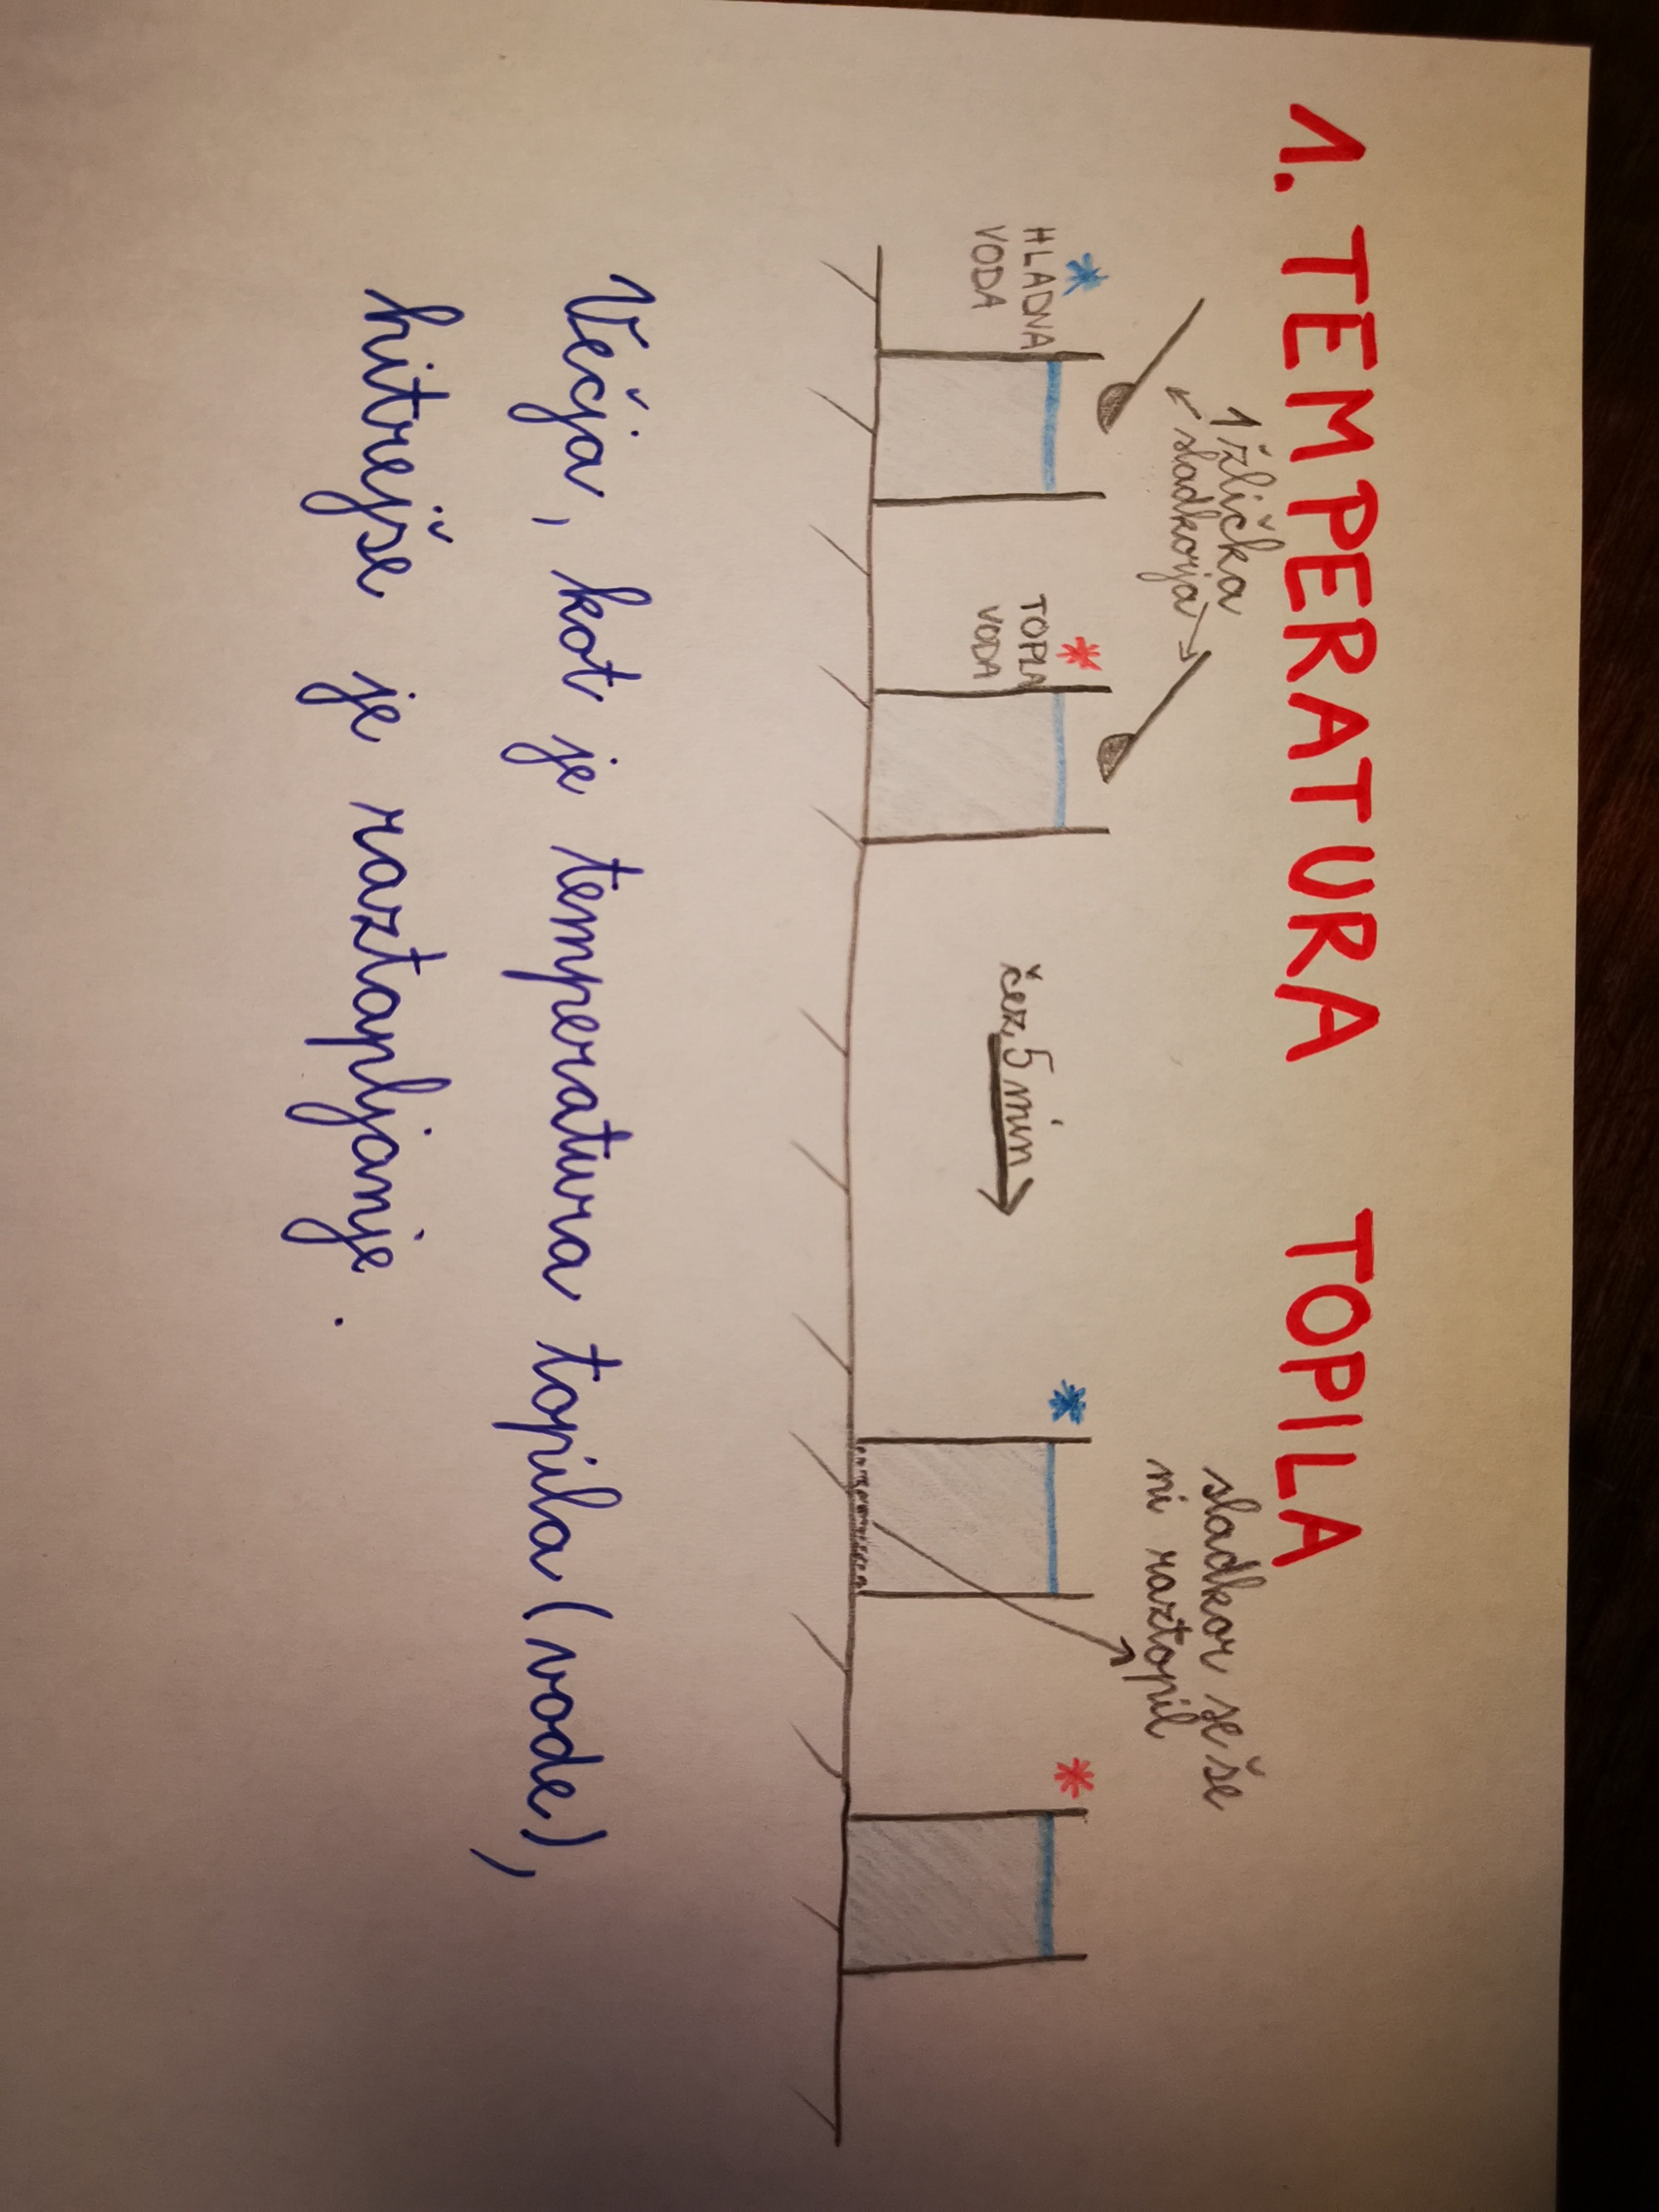 1. TEMPERATURA TOPILA
1 žlička
sladkorja
HLADNA
VODA
TOPLA
VODA
čez 5 min
sladkor se še
ni raztopil
Večja, kot je temperatura topila (vode),
hitrejše je raztapljanje.